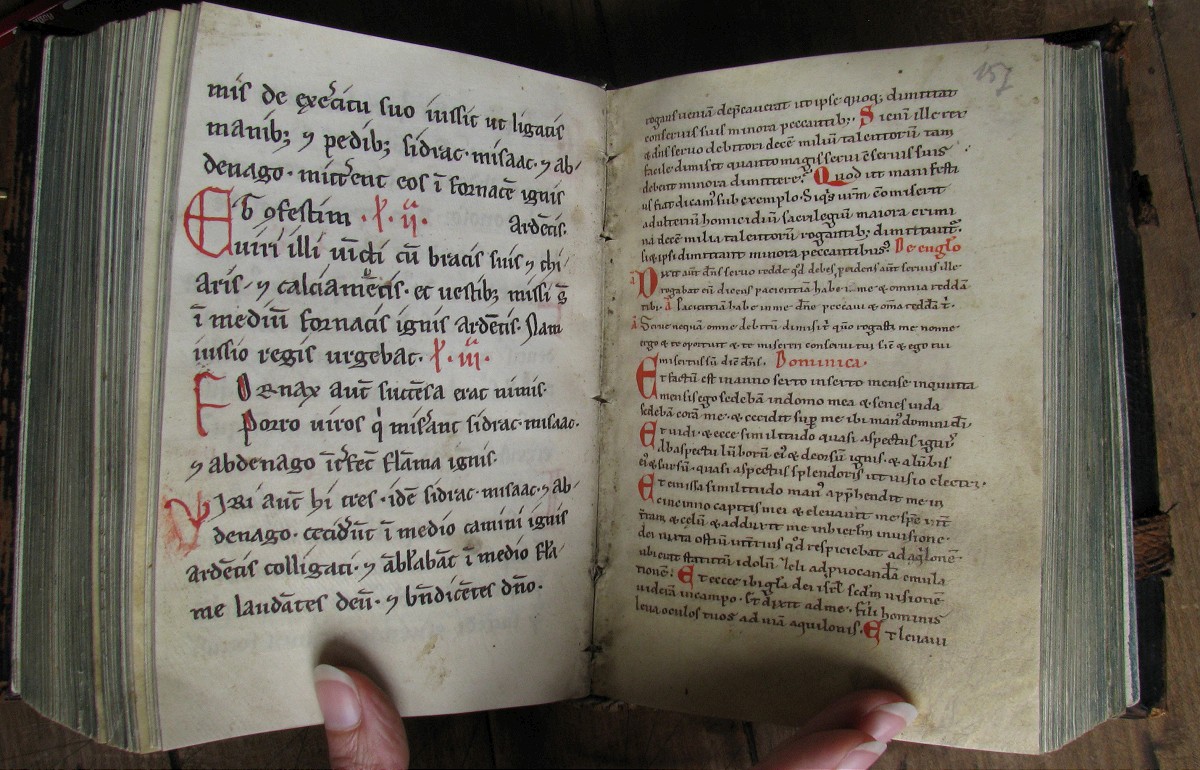 mis de exercitu suo iussit ut ligatis
manib; ⁊ pedib; sidrac· misaac· ⁊ ab/
denago· mitt'ent eos ī fornacē ignis
Et ɔfestim ·℟· ij· Ardētis.
uiri illi uīcti cū bracis suis ⁊ thi/
Aris· ⁊ calciamētis· et uestib; missi s̄
ī mediū fornacis ignis Ardētis· Nam
iussio regis urgebat· ℟· iij·
FOrnax aut̄ succēsa erat nimis·
Porro uiros q̇ mis'ant sidrac· misaac·
⁊ abdenago īt'fec̄ flāma ignis·
VIRI aut̄ hi tres· idē sidrac· misaac· ⁊ ab/
denago· cecid'ūt ī medio camini ignis
ardētis colligati· ⁊ āb̄labāt ī medio flā/
me laudātes deū· ⁊ bn̄dicētes dn̄o·
157
rogans ueniā dep̄cauerat ut ipse quoq; dimittat
conseruis suis minora peccantib;· Si enī ille rex
& dn̄s seruo debitori decē miliū talentorū tam
facile dimisit quanto magis serui cōseruis suis
debent minora dimittere· Quod ut manifesti
us fiat dicam' sub exemplo· Siq's ur̄m cōmiserit
adulteriū homicidiū sacrilegiū maiora crimi
na decē milia talentorū rogantib; dimittunt'·
si & ipsi dimittant minora peccantibus· De eunglo
Dixit aut̄ dn̄s seruo redde q'd debes, p̄cidens aut̄ seruus ille·
rogabat eū dicens pacientiā habe ī me & omnia reddā
tibi· Pacientiā habe in me dn̄e peccaui & om̄a reddā t̄·
Serue nequā omne debitū dimisi t̄ qn̄o rogasti me nonne·
ergo & te oportuit & te misereri conserui tui sic̄ & ego tui
misertus sū dic̄ dn̄s· Dominica·
Et factū est in anno sexto in sexto mense in quinta
mensis ego sedebā in domo mea & senes iuda
sedebā corā me· & cecidit sup̄ me ibi man' domini di·
Et uidi & ecce similitudo quasi aspectus ignis·
Ab aspectu lūborū ei' & deorsū ignis· & a lūbis
ei' & sursū· quasi aspectus splendoris ut uisio electri·
Et emissa similitudo man' app̄hendit me in
cincinno capitis mei & eleuauit me sp̄c int̄
t'ram & celū & adduxit me in hierl'm in uisione·
dei iuxta ostiū int'ius q'd respiciebat ad aq'lonē·
ubi erat statutū idolū zeli ad prouocandā emula
tionē· Et ecce ibi gl̄a dei isr̄l scd̄m uisionē
uiderā in campo· & dixit ad me· fili hominis
leua oculos tuos ad uiā aquilonis· Et leuaui